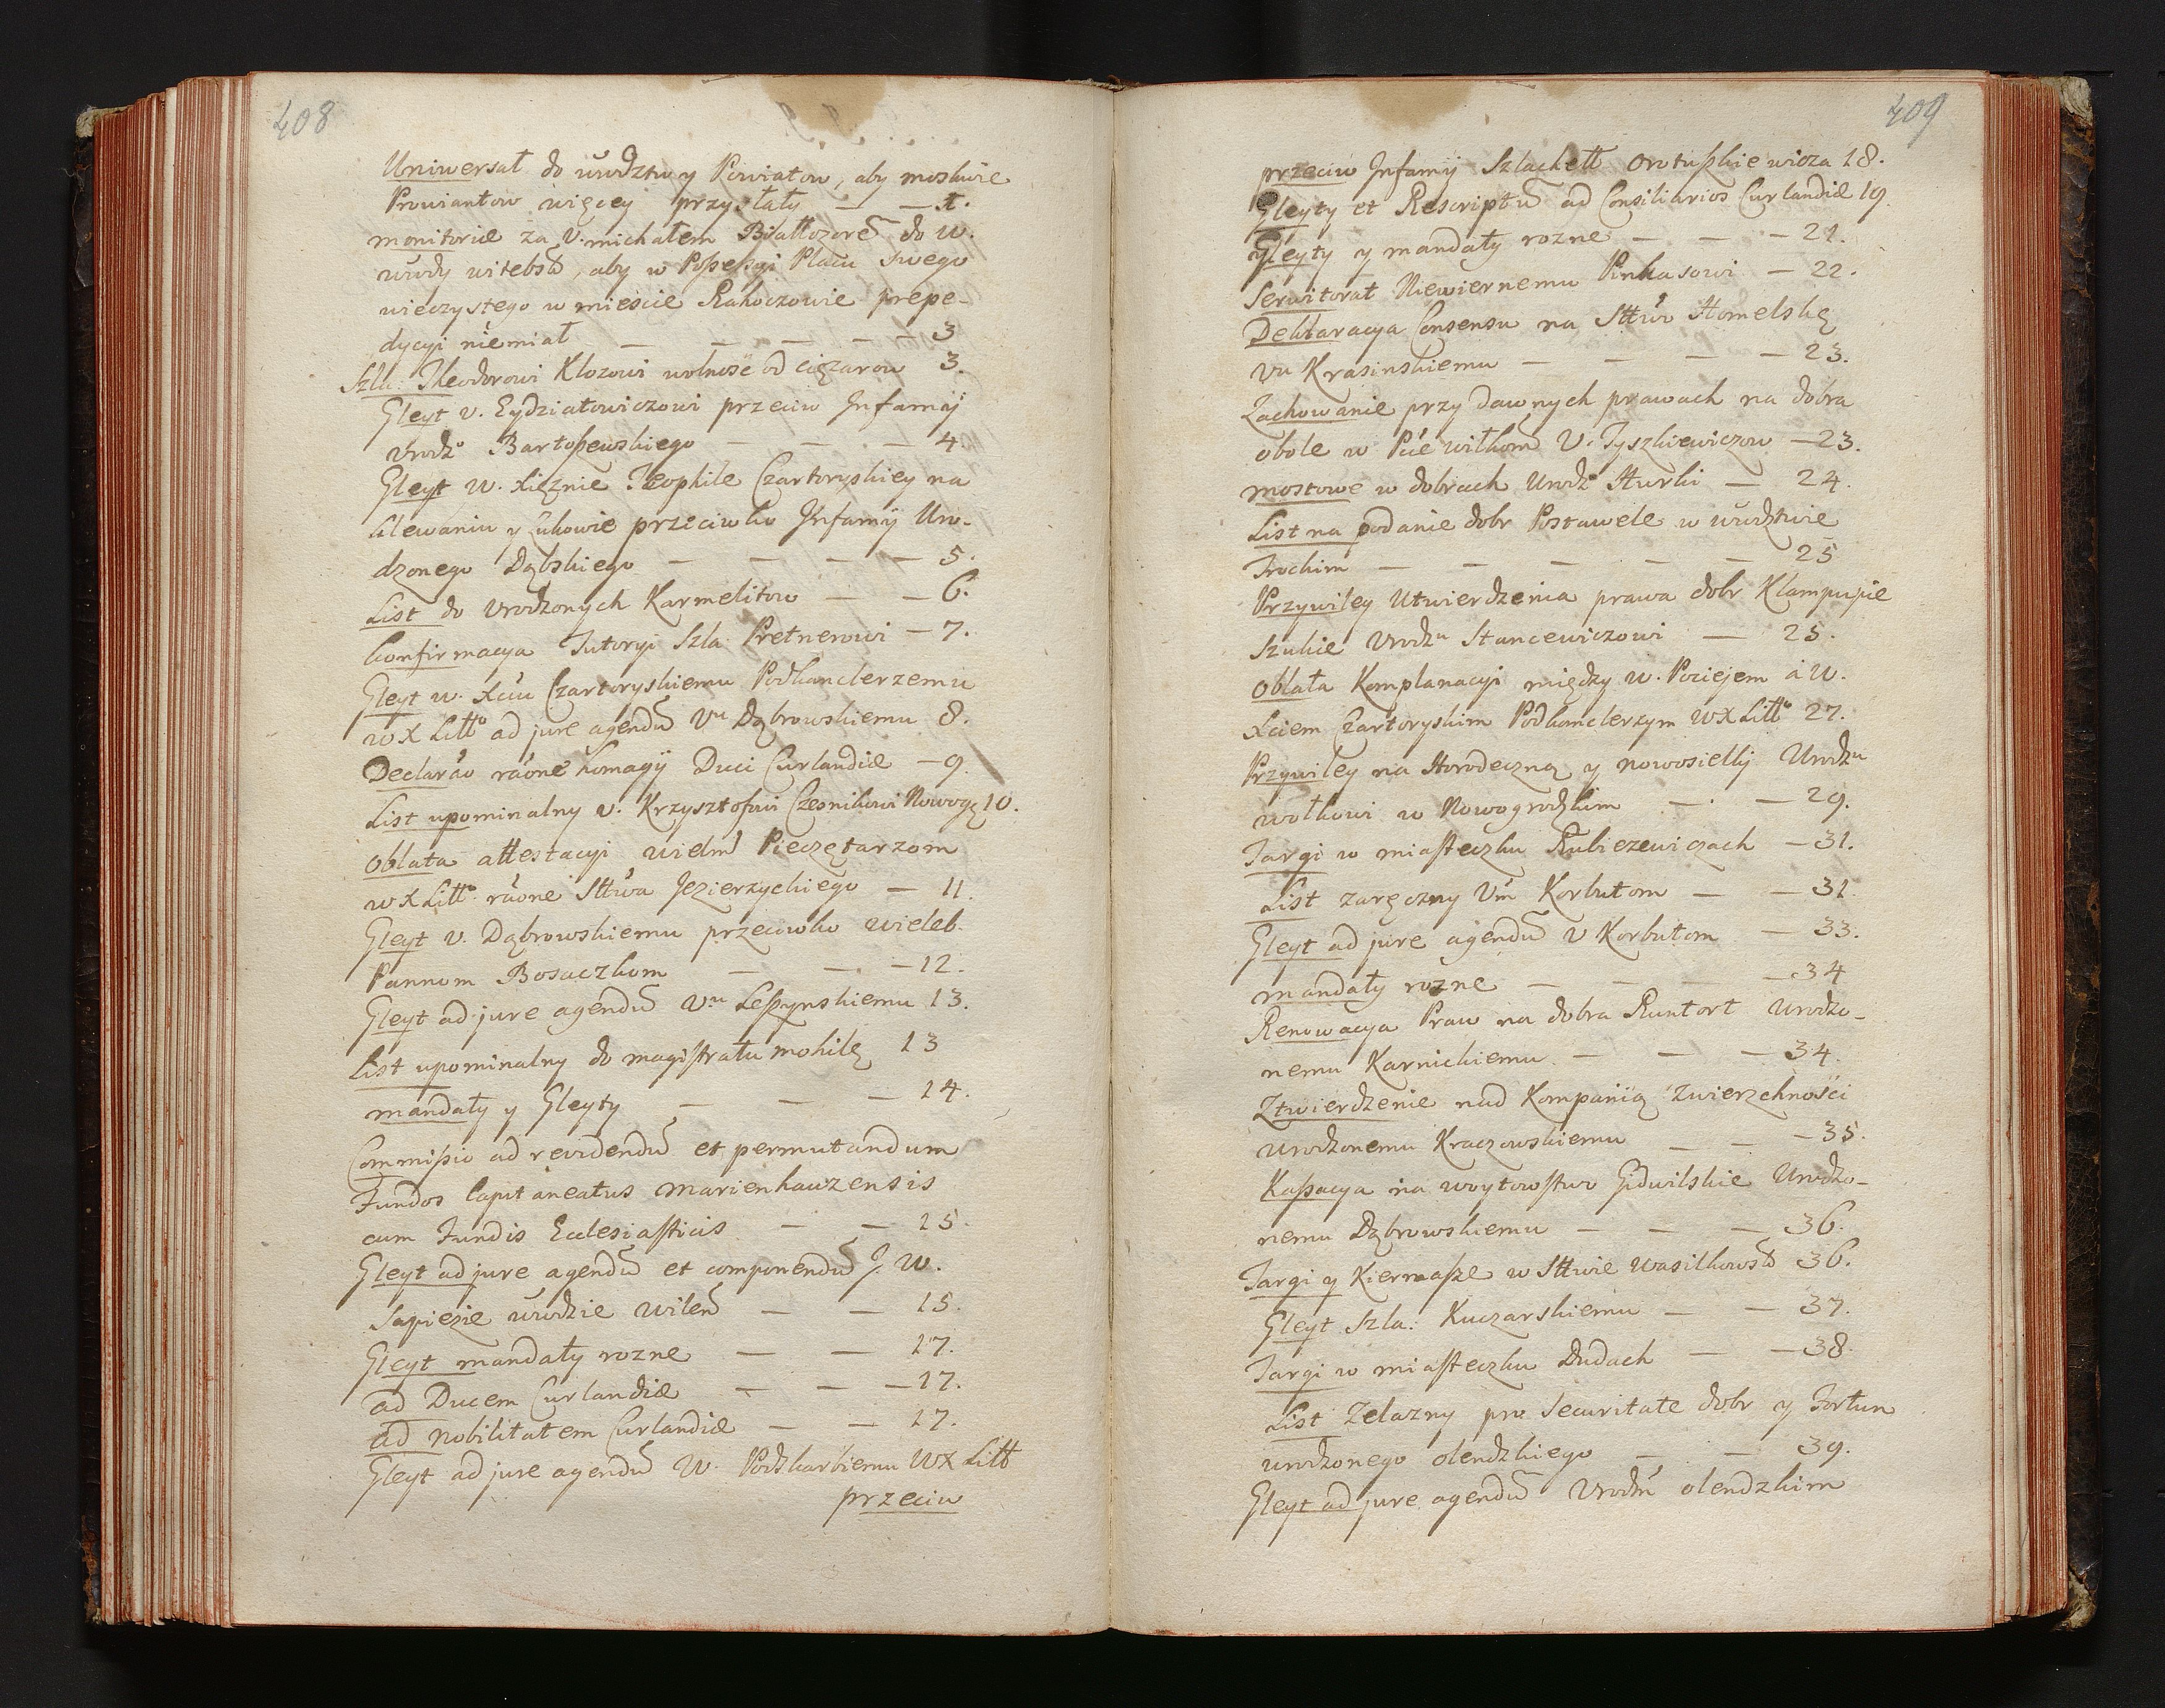 408
Uniwersał do wwdztw y Powiatow, aby moskwie
Prowiantow więcey przystały — — 1.
monitoriæ za U. michałem Białłozorē do W.
wwdy witebs͠k, aby w Poßeßyi Placu swego
wieczystego w mieście Rahoczowie prepe-
dycyi niemiał — — — — 3
Szla: Theodorowi Klozowi wolność od ciężarow 3.
Gleyt U. Eydziatowiczowi przeciw Jnfamij
Urodzo Bartoßewskiego — — — 4.
Gleyt W. Xiężnie Teophile Czartoryskiey na
Klewaniu y Żukowie przeciwko Jnfamij Uro-
dzonego Dąbskiego — — — — 5.
List do Urodzonych Karmelitow — — 6.
Confirmacya Tutoryi Szla: Pretnerowi — 7.
Gleyt W. Xciu Czartoryskiemu Podkanclerzemu
W X Litto ad jure agendū Uu Dąbrowskiemu 8.
Declarāo rãone homagij Duci Curlandiæ — 9.
List upominalny U. Krzysztofowi Czesnikowi Nowogr 10.
Oblata attestacyi wielm Pieczętarzom
W X Litto rãone Sttwa Jezierzyckiego — 11.
Gleyt U. Dąbrowskiemu przeciwko wieleb.
Pannom Bosaczkom — — — 12.
Gleyt ad jure agendū Uu Leßzynskiemu 13.
List upominalny do magistratu mohilę 13
mandaty y Gleyty — — — 14.
Commißio ad revidendū et permutandum
Fundos Capitaneatus marienhauzensis
cum Fundis Ecclesiasticis — — 15.
Gleyt ad jure agendū et componendū J. W.
Sapiezie wwdzie wileń — — 15.
Gleyt mandaty rozne — — 17.
ad Ducem Curlandiæ — — — 17.
ad nobilitatem Curlandiæ — — 17.
Gleyt ad jure agendū W. Podskarbiemu WX Litt
przeciw
409
przeciw Jnfamij Szlachett Orotußkiewicza 18.
Gleyty et Rescriptū ad Consiliarios Curlandiæ 19.
Gleyty y mandaty rozne — — — 21.
Serwitorat Niewiernemu Pinkasowi — 22.
Deklaracya Consensu na Sttwo Homelskę
Uu Krasinskiemu — — — — 23.
Zachowanie przy dawnych prawach na dobra
obole w Pcie wiłkom U. Tyszkiewiczow — 23.
mostowe w dobrach Urodzo Hurki — 24.
List na podanie dobr Postawele w wwdztwie
Trockim — — — — — 25
Przywiley Utwierdzenia prawa dobr Klampupie
Szukie Urodzu Stancewiczowi — 25.
Oblata Komplanacyi między W. Pociejem a W.
Xciem Czartoryskim Podkanclerzym WX Litto 27.
Przywiley na Horodeczną y nowosielki Urodzu
wołkowi w Nowogrodzkim — — 29.
Targi w miasteczku Rubiezewiczach — 31.
List zaręczny Um Korbutom — — 31.
Gleyt ad jure agendū U Korbutom — 33.
mandaty rozne — — — — 34
Renowacya Praw na dobra Runtort Urodzo-
nemu Karnickiemu — — — 34.
Ztwierdzenie nad Kompanią zwierzchności
urodzonemu Kraczowskiemu — — — 35.
Kaßacya na woytowstwo Gidwilskie Urodzo-
nemu Dąbrowskiemu — — — 36.
Targi y Kiermaße w Sttwie Wasilkows͠k 36.
Gleyt Szla: Kuczarskiemu — — 37.
Targi w miasteczku Dudach — — 38.
List Zelazny pro Securitate dobr y Fortun
urodzonego olendzkiego — — 39.
Gleyt ad jure agendū Urodzm olendzkim